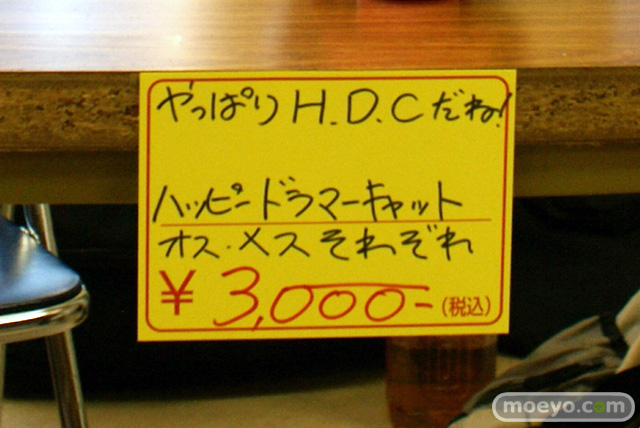 やっぱりH.D.Cだね!
ハッピードラマーキャット
オス・メスそれぞれ
¥3,000-(税込)
moeyo.com